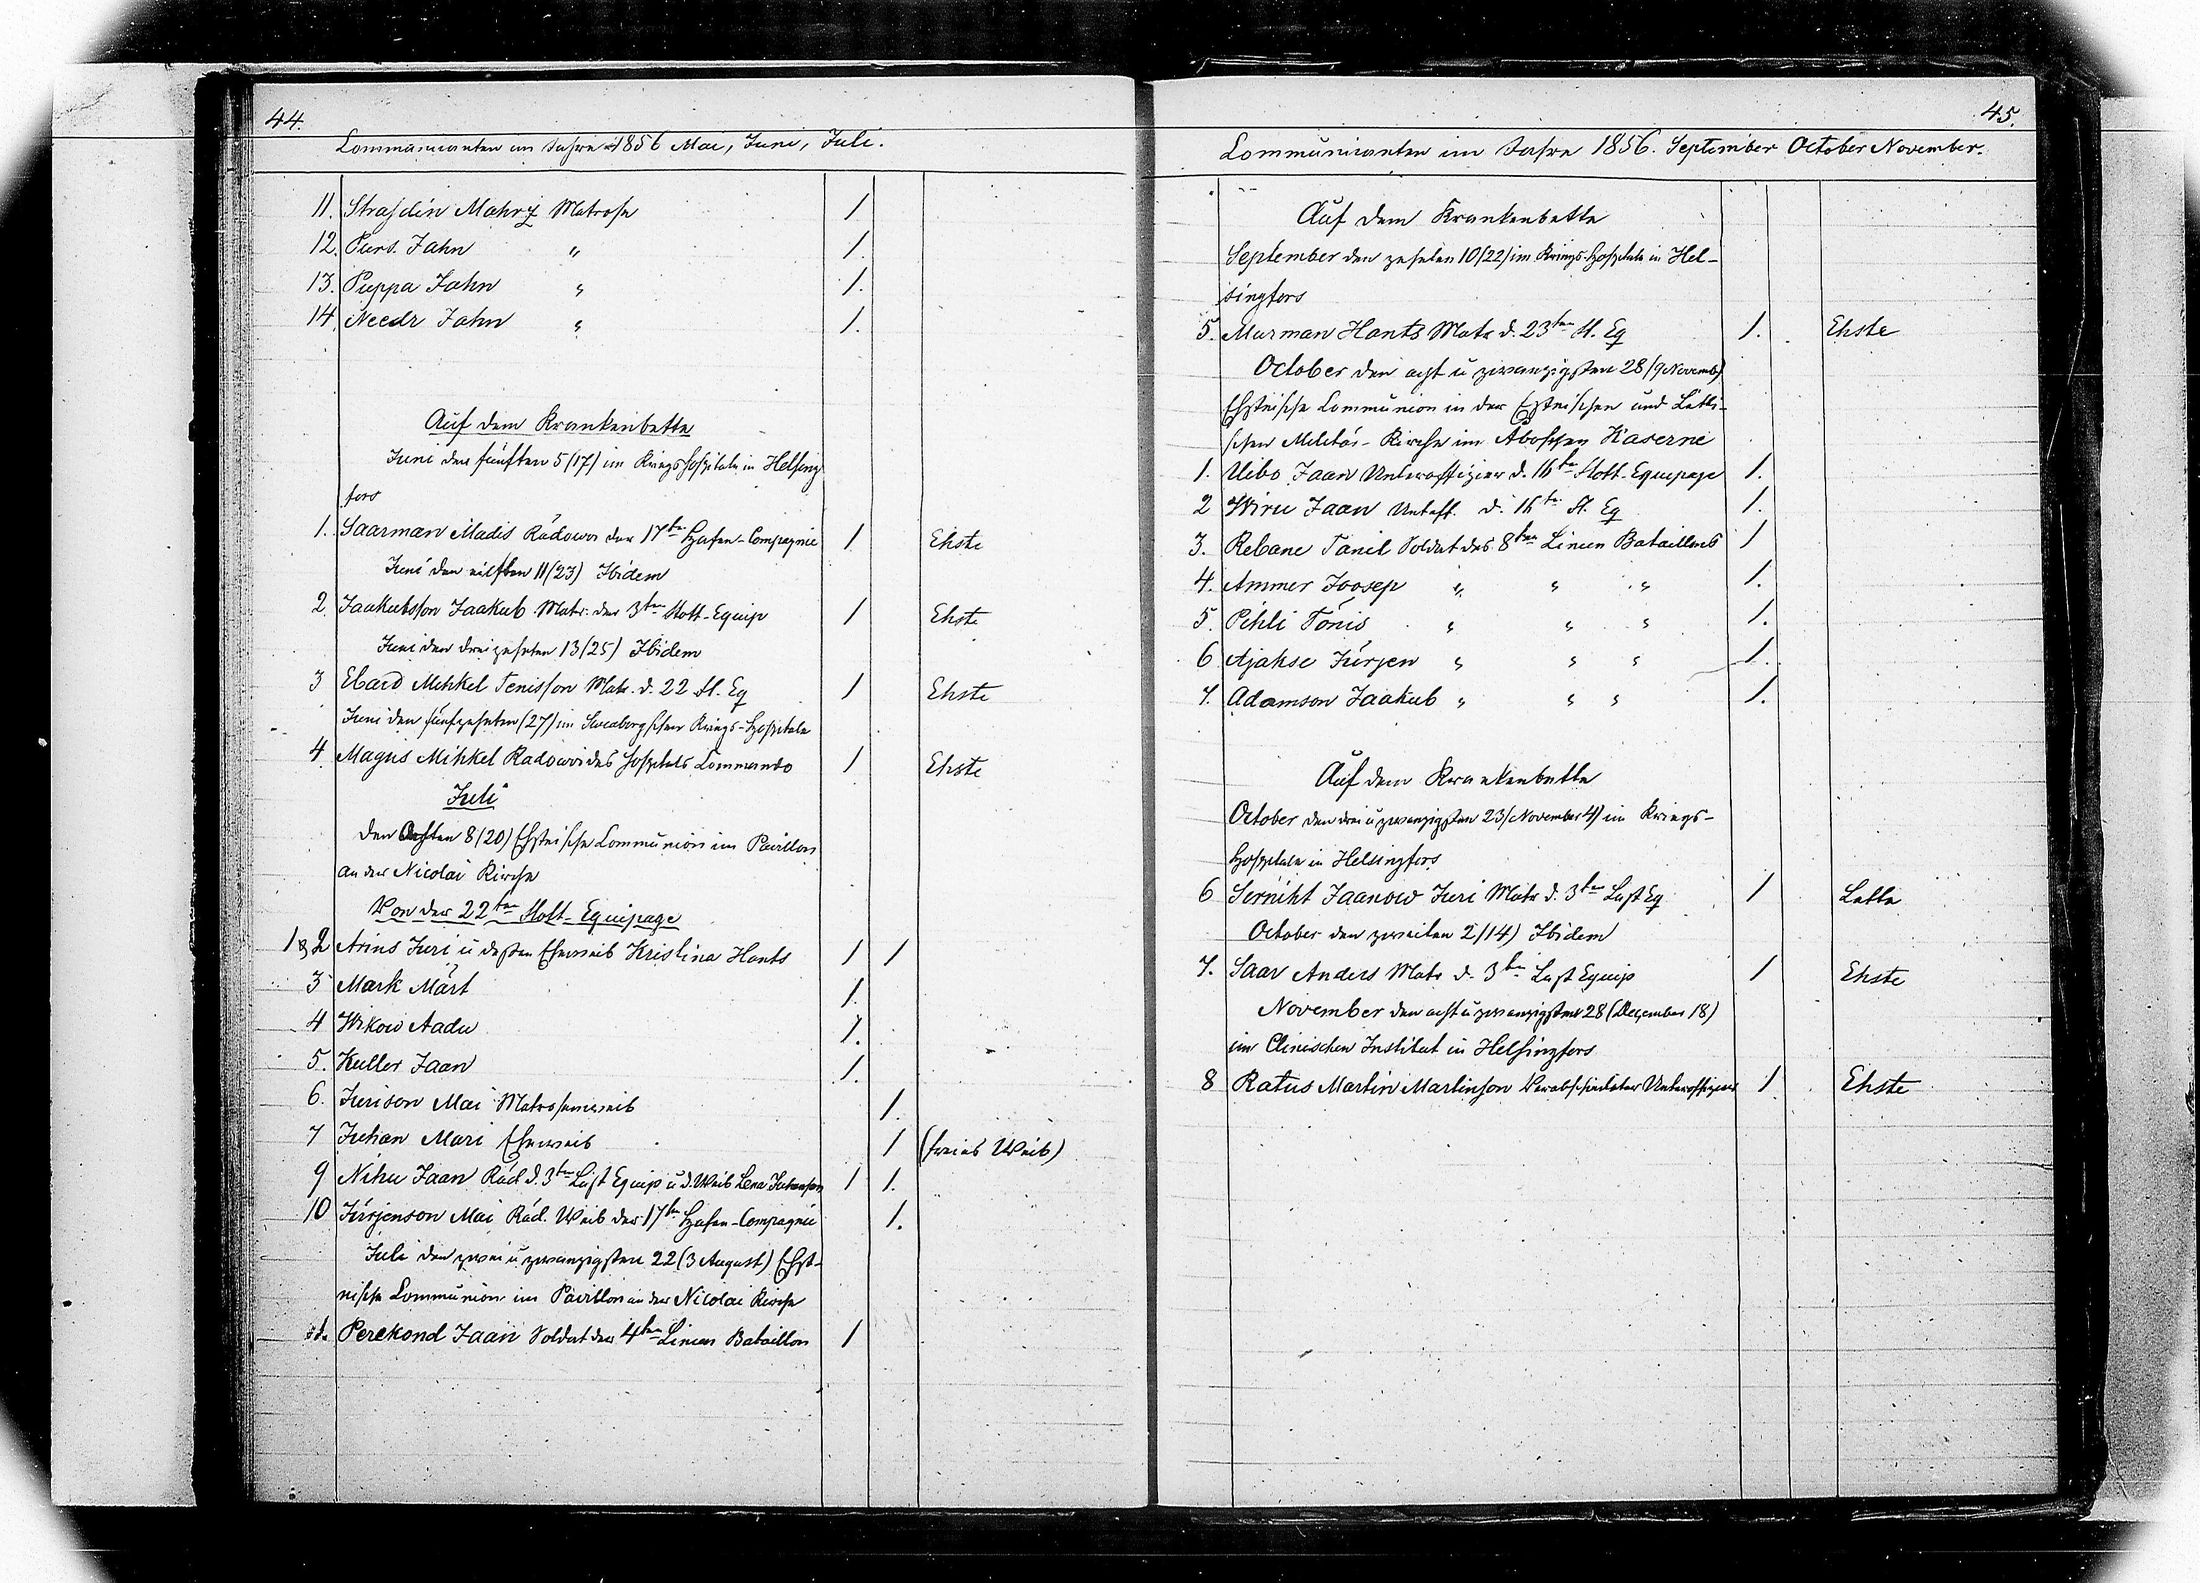 44.
Communicanten im Jahre 1856 Mai, Juni, Juli.
11. Strasdin Mahrz Matrose 1
12. Purs. Jahn " 1.
13. Puppa Jahn " 1.
14. Needr Jahn " 1.
Auf dem Krankenbette
Juni den fünften 5/17/ im Kriegshospitale in Helsing
fors
1. Saarman Madis Rädowoi der 17ten Hafen-Compagnie 1 Ehste
Juni den eilften 11/23) Ibidem
2. Jaakubsson Jaakub Matr. der 3ten Flott-Equip 1 Ehste
Juni den dreizehnten 13/25) Ibidem
3 Ebard Mihkel Tenisson Matr. d. 22 Fl. Eq 1 Ehste
Juni den fünfzehnten (27) im Sweaborgschen Kriegs-Hospitale
4. Magus Mihkel Radowoi des Hospitals Commando 1 Ehste
Juli
den Achten 8/20) Ehstnische Communion im Pavillon
an der Nicolai Kirche
Von der 22ten Flott-Equipage
1 & 2 Arins Juri u dessen Eheweib Kristina Hants 1 1
3 Mark Märt 1.
4 Wikow Aadu 1.
5. Kuller Jaan 1.
6. Jurison Mai Matrosenweib 1.
7 Juhan Mari Eheweib 1 (freies Weib)
9 Nihu Jaan Räd d. 3ten Last Equip u d. Weib Lena Juhanson 1 1.
10 Jürjenson Mai Räd. Weib der 17ten Hafen-Compagnie 1.
Juli den zwei u zwanzigsten 22 (3 August) Ehst-
nische Communion im Pavillon an der Nicolai Kirche
Perekond Jaan Soldat der 4ten Linien Bataillon 1
45.
Communicanten im Jahre 1856. September October November.
Auf dem Krankenbette
September den zehnten 10/22/ im Kriegs-Hospitale in Hel-
singfors
5. Murman Hants Matr d. 23ten Fl. Eq 1. Ehste
October den acht u zwanzigsten 28/9 Novemb)
Ehstnische Communion in der Ehstnischen und Letti-
schen Militär-Kirche im Åboschen Kaserne
1. Uibo Jaan Unteroffizier d. 16ten Flott-Equipage 1.
2 Wiru Jaan Untoff. d. 16ten Fl. Eq 1.
3. Rebane Tanil Soldat des 8ten Linien Bataillons 1
4. Ammer Joosep " " " 1.
5. Pihli Tönis " " " 1.
6 Ajakse Jürjen " " " 1.
7. Adamson Jaakub " " " 1.
Auf dem Krankenbette
October den drei u zwanzigsten 23/November 4/ im Kriegs-
Hospitale in Helsingfors
6 Sernikt Jaanow Juri Matr d. 3ten Last Eq 1 Lette
October den zweiten 2/14) Ibidem
7. Saar Anders Matr d. 3ten Last Equip 1 Ehste
November den acht u zwanzigsten 28 (December 18)
im Clinischen Institut in Helsingfors
8 Ratus Martin Martinson Verabschiedeter Unteroffizier 1 Ehste